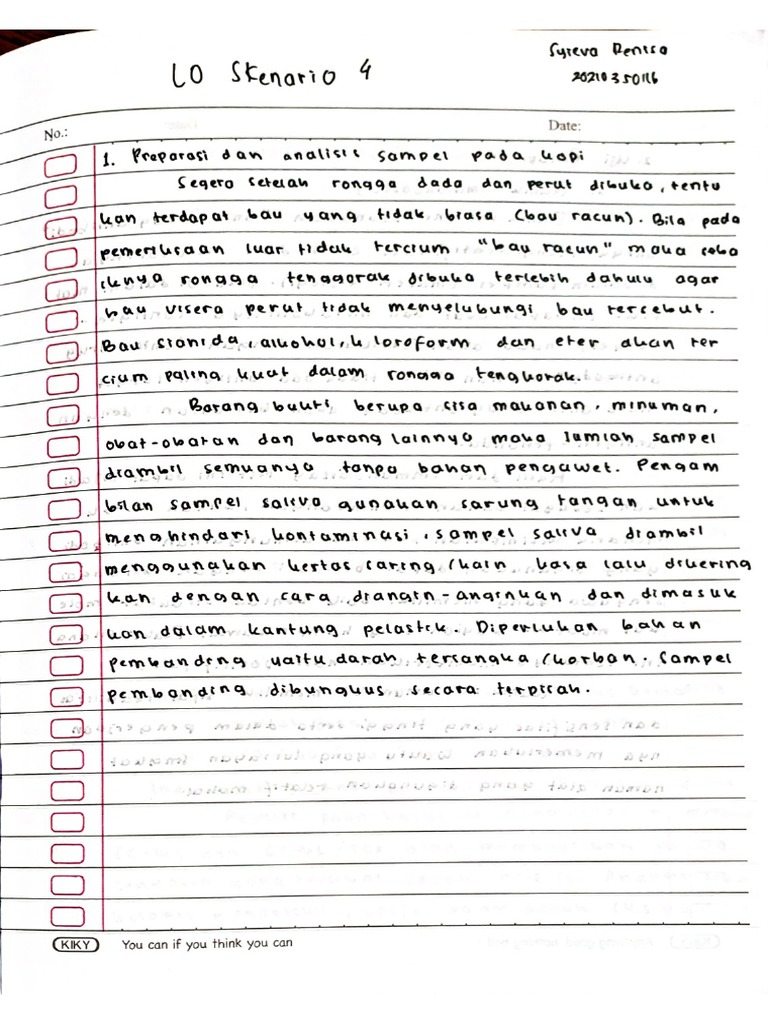 LO Skenario 4
Syieva Denisa
20210350116
No.:
Date:
1. Preparasi dan analisis sampel pada kopi
Segera setelah rongga dada dan perut dibuka, tentu
kan terdapat bau yang tidak biasa (bau racun). Bila pada
pemeriksaan luar tidak tercium "bau racun" maka seba
iknya rongga tenggorak dibuka terlebih dahulu agar
bau visera perut tidak menyelubungi bau tersebut.
Bau sianida, alkohol, kloroform dan eter akan ter
cium paling kuat dalam rongga tengkorak.
Barang bukti berupa sisa makanan, minuman,
obat-obatan dan barang lainnya maka jumlah sampel
diambil semuanya tanpa bahan pengawet. Pengam
bilan sampel saliva gunakan sarung tangan untuk
menghindari kontaminasi, sampel saliva diambil
menggunakan kertas saring/kain kasa lalu dikering
kan dengan cara diangin-anginkan dan dimasuk
kan dalam kantung pelastik. Diperlukan bahan
pembanding yaitu darah tersangka/korban. Sampel
pembanding dibungkus secara terpisah.
KIKY You can if you think you can